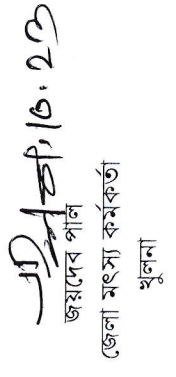 জয়দেব পাল
জেলা মৎস্য কর্মকর্তা
খুলনা